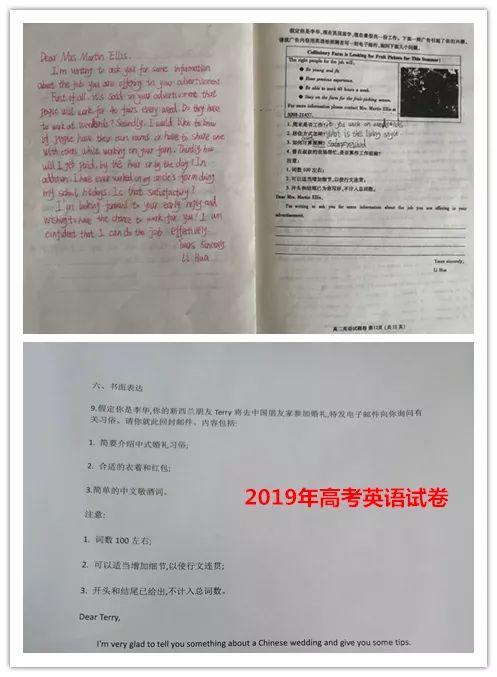 Dear Mrs Martin Ellis.
I'm writing to ask you for some information
about the job you are offering in your advertisement
First of all, it's said in your advertisement that
people will work for 40 hours every week. Do they have
to work at weekends? Secondly, I would like to know
if people have their own rooms or have to share one
with others while working on your farm. Thirdly how
will I get paid, by the hour or by the day? In
addition, I have ever worked on my uncle's farm during
my school holidays. Is that satisfactory?
I'm looking forward to your early reply and
wishing to have the chance to work for you! I am
confident that I can do the job effectively.
Yours Sincerely
Li Hua
假定你是李华,现在英国留学,想在暑假找一份工作。下面一则广告引起了你的兴趣,
请就广告内容用英语给招聘者写一封电子邮件,询问下面几个问题。
Farm is Looking for Fruit Pickers for This Summer!
The right people for the job will,
● Be young and fit.
● Have previous experience.
● Be able to work 40 hours a week.
● Stay on the farm for the fruit-picking season.
For more information please contact Mrs. Martin Ellis at
1.周末是否工作? Do you work on weekends
2.居住方式怎样? What is the living style
3.如何计算报酬?
4.曾在叔叔的农场帮忙,是否算作工作经验?
注意:
1.词数100左右;
2.可以适当增加细节,以使行文连贯;
3.开头和结尾已为你写好,不计入总词数。
Dear Mrs. Martin Ellis,
I'm writing to ask you for some information about the job you are offering in your
advertisement.
Yours sincerely,
Li Hua
高二英语试题卷 第12页(共12页)
六、书面表达
9.假定你是李华,你的新西兰朋友 Terry 将去中国朋友家参加婚礼,特发电子邮件向你询问有
关习俗。请你就此回封邮件。内容包括:
1. 简要介绍中式婚礼习俗;
2. 合适的衣着和红包;
3.简单的中文敬酒词。
2019年高考英语试卷
注意:
1. 词数 100 左右;
2. 可以适当增加细节,以使行文连贯;
3. 开头和结尾已给出,不计入总词数。
Dear Terry,
I'm very glad to tell you something about a Chinese wedding and give you some tips.